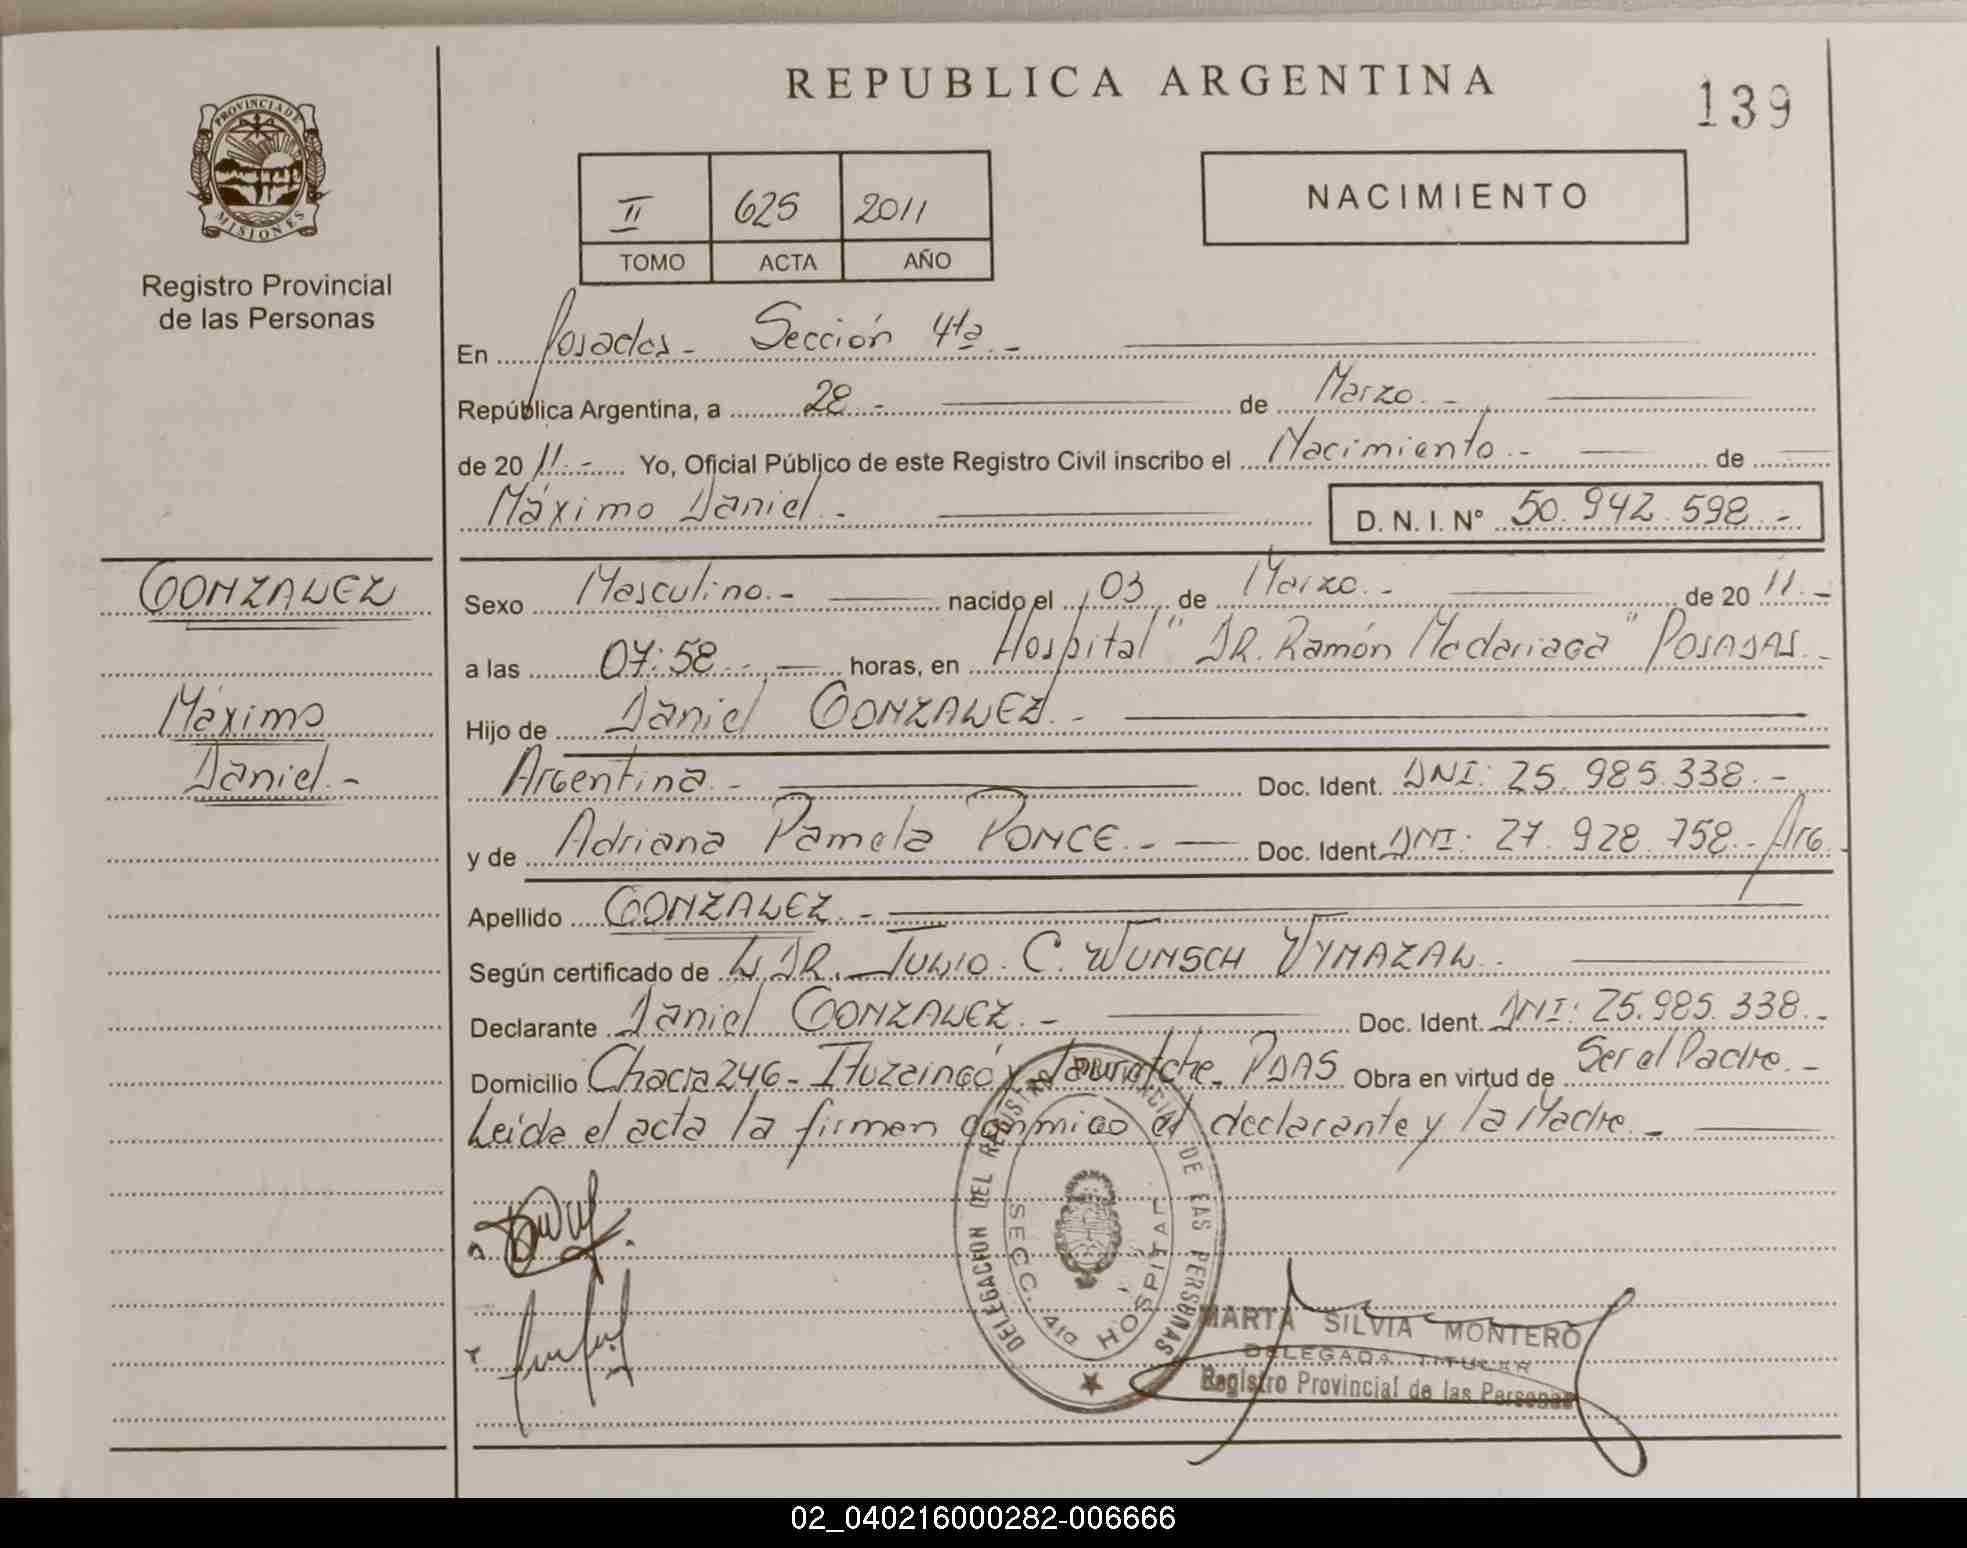 REPUBLICA ARGENTINA
139
PROVINCIA DE MISIONES
Registro Provincial
de las Personas
II 625 2011
TOMO ACTA AÑO
NACIMIENTO
En Posadas - Sección 4ta. -
República Argentina, a 28 - de Marzo. -
de 20 11. - Yo, Oficial Público de este Registro Civil inscribo el Nacimiento. - de
Máximo Daniel. - D. N. I. Nº 50.942.598. -
GONZALEZ
Máximo
Daniel. -
Sexo Masculino. - nacido el 03 de Marzo. - de 20 11. -
a las 07:58. - horas, en Hospital "DR. Ramón Madariaga" POSADAS. -
Hijo de Daniel GONZALEZ. -
Argentina. - Doc. Ident. DNI: 25.985.338. -
y de Adriana Pamela PONCE. - Doc. Ident. DNI: 27.928.758. - Arg.
Apellido GONZALEZ. -
Según certificado de DR. JULIO. C. WUNSCH VYMAZAL. -
Declarante Daniel GONZALEZ. - Doc. Ident. DNI: 25.985.338. -
Domicilio Chacra 246 - Ituzaingó y PDAS Obra en virtud de Ser el Padre. -
Leida el acta la firman conmigo el declarante y la Madre. -
DELEGACION DEL REGISTRO PROVINCIAL DE LAS PERSONAS
SECC. 4ta HOSPITAL
MARTA SILVIA MONTERO
DELEGADA TITULAR
Registro Provincial de las Personas
02_040216000282-006666